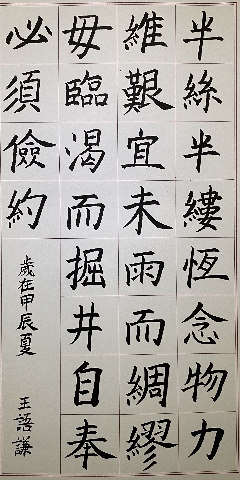 半絲半縷恆念物力
維艱宜未雨而綢繆
毋臨渴而掘井自奉
必須儉約
歲在甲辰夏
王語謙